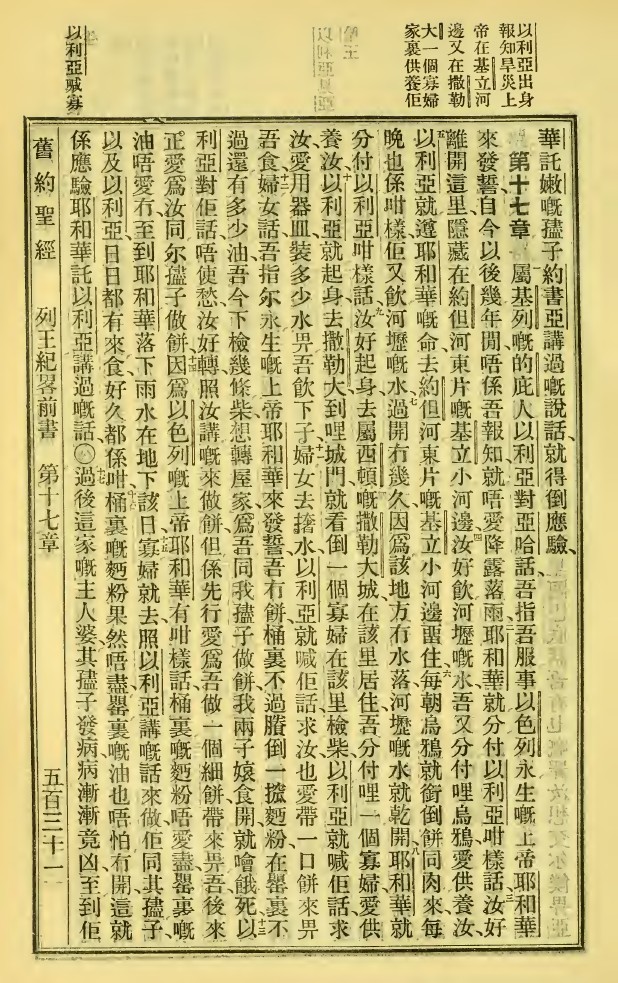 以利亞出身
報知旱災上
帝在基立河
邊又在撒勒
大一個寡婦
家裏供養佢
以利亞喊寡
華託嫩嘅孻子約書亞講過嘅說話、就得倒應驗、
第十七章 屬基列嘅的庇人以利亞對亞哈話、吾指吾服事以色列永生嘅上帝耶和華
來發誓、自今以後幾年間、唔係吾報知、就唔愛降露落雨、二耶和華就分付以利亞咁樣話、三汝好
離開這里、隱藏在約但河東片嘅基立小河邊、四汝好飲河壢嘅水、吾又分付哩烏鴉愛供養汝、
五以利亞就遵耶和華嘅命、去約但河東片嘅基立小河邊歇住、六每朝烏鴉就銜倒餅同肉來、每
晚也係咁樣、佢又飲河壢嘅水、七過開冇幾久、因為該地方冇水落、河壢嘅水就乾開、八耶和華就
分付以利亞咁樣話、九汝好起身去屬西頓嘅撒勒大城、在該里居住、吾分付哩一個寡婦愛供
養汝、十以利亞就起身去撒勒大、到哩城門、就看倒一個寡婦在該里檢柴、以利亞就喊佢話、求
汝愛用器皿裝多少水畀吾飲下子、十一婦女去捧水、以利亞就喊佢話、求汝也愛帶一口餅來畀
吾食、十二婦女話、吾指尔永生嘅上帝耶和華來發誓、吾冇餅、桶裏不過賸倒一㨶麪粉、在罌裏不
過還有多少油、吾今下檢幾條柴、想轉屋家為吾同我孻子做餅、我兩子娭食開就噲餓死、十三以
利亞對佢話、唔使愁、汝好轉照汝講嘅來做餅、但係先行愛為吾做一個細餅帶來畀吾、後來
正愛為汝同尔孻子做餅、十四因為以色列嘅上帝耶和華有咁樣話、桶裏嘅麪粉唔愛盡、罌裏嘅
油唔愛冇、至到耶和華落下雨水在地下該日、十五寡婦就去照以利亞講嘅話來做、佢同其孻子、
以及以利亞、日日都有來食、好久都係咁、十六桶裏嘅麪粉果然唔盡、罌裏嘅油也唔怕有開、這就
係應驗耶和華託以利亞講過嘅話、〇十七過後這家嘅主人婆、其孻子發病、病漸漸竟凶、至到佢
舊約聖經 列王紀畧前書 第十七章 五百三十一